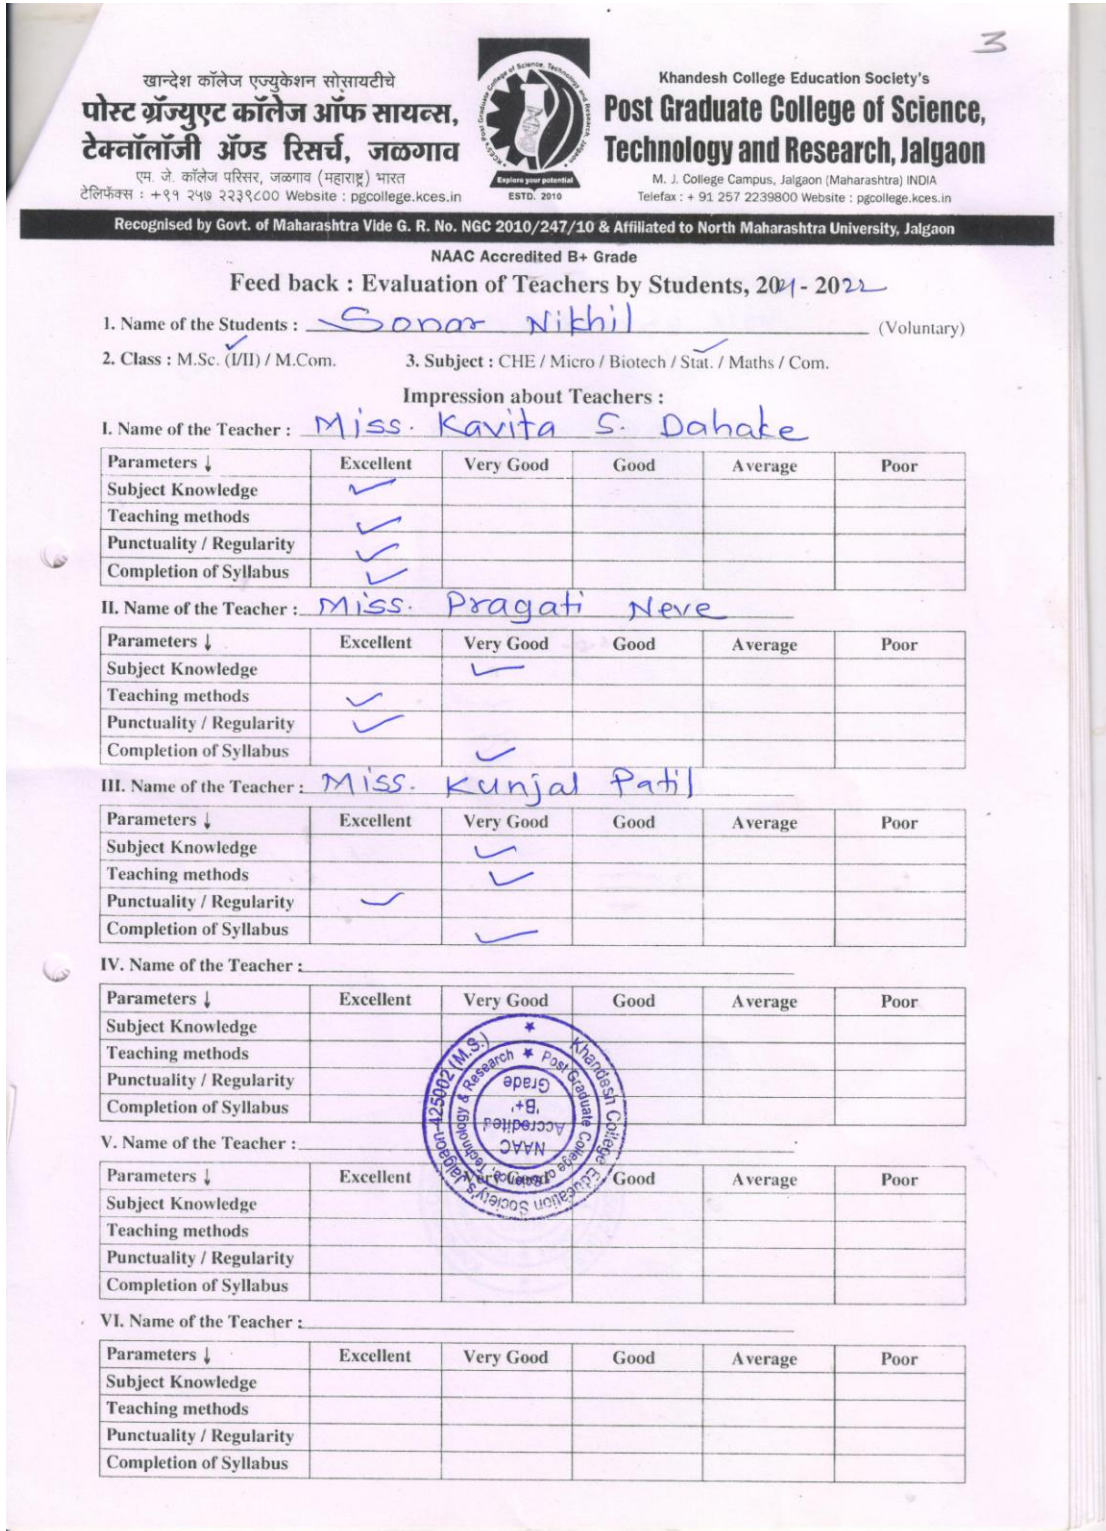 3
खान्देश कॉलेज एज्युकेशन सोसायटीचे
पोस्ट ग्रॅज्युएट कॉलेज ऑफ सायन्स,
टेक्नॉलॉजी ॲण्ड रिसर्च, जळगाव
एम. जे. कॉलेज परिसर, जळगाव (महाराष्ट्र) भारत
टेलिफॅक्स : +९१ २५७ २२३९८०० Website : pgcollege.kces.in
KCES's Post Graduate College of Science, Technology and Research, Jalgaon
Explore your potential
ESTD. 2010
Khandesh College Education Society's
Post Graduate College of Science,
Technology and Research, Jalgaon
M. J. College Campus, Jalgaon (Maharashtra) INDIA
Telefax : + 91 257 2239800 Website : pgcollege.kces.in
Recognised by Govt. of Maharashtra Vide G. R. No. NGC 2010/247/10 & Affiliated to North Maharashtra University, Jalgaon
NAAC Accredited B+ Grade
Feed back : Evaluation of Teachers by Students, 2021 - 2022
1. Name of the Students : Sonar Nikhil (Voluntary)
2. Class : M.Sc. (I/II) / M.Com. 3. Subject : CHE / Micro / Biotech / Stat. / Maths / Com.
Impression about Teachers :
I. Name of the Teacher : Miss. Kavita S. Dahake
Parameters ↓ Excellent Very Good Good Average Poor
Subject Knowledge ✓
Teaching methods ✓
Punctuality / Regularity ✓
Completion of Syllabus ✓
II. Name of the Teacher : Miss. Pragati Neve
Parameters ↓ Excellent Very Good Good Average Poor
Subject Knowledge ✓
Teaching methods ✓
Punctuality / Regularity ✓
Completion of Syllabus ✓
III. Name of the Teacher : Miss. Kunjal Patil
Parameters ↓ Excellent Very Good Good Average Poor
Subject Knowledge ✓
Teaching methods ✓
Punctuality / Regularity ✓
Completion of Syllabus ✓
IV. Name of the Teacher :
Parameters ↓ Excellent Very Good Good Average Poor
Subject Knowledge
Teaching methods
Punctuality / Regularity
Completion of Syllabus
Khandesh College Education Society's Jalgaon-425002 (M.S.)
Post Graduate College of Science, Technology & Research
NAAC
Accredited
'B+'
Grade
V. Name of the Teacher :
Parameters ↓ Excellent Very Good Good Average Poor
Subject Knowledge
Teaching methods
Punctuality / Regularity
Completion of Syllabus
VI. Name of the Teacher :
Parameters ↓ Excellent Very Good Good Average Poor
Subject Knowledge
Teaching methods
Punctuality / Regularity
Completion of Syllabus